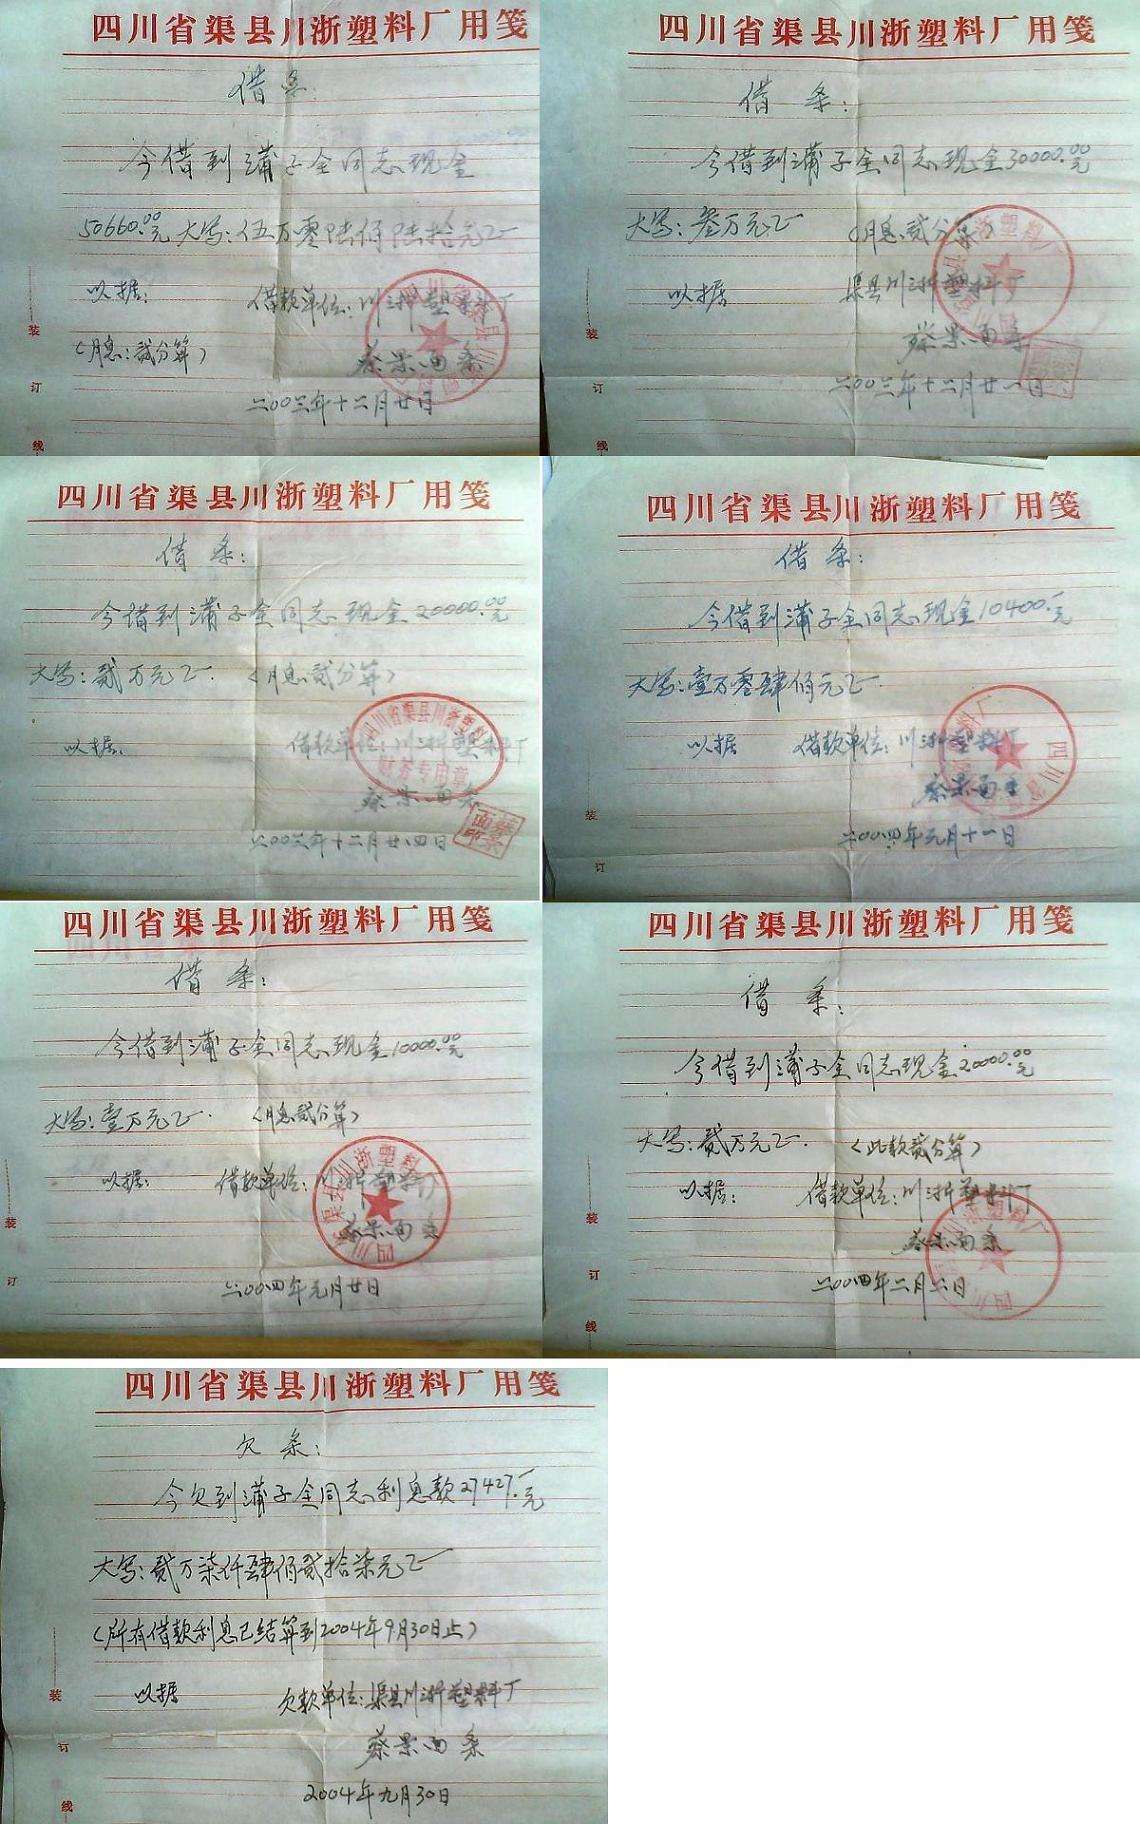 四川省渠县川浙塑料厂用笺
借条:
今借到蒲子全同志现金
50660.00元大写:伍万零陆佰陆拾元正
以据: 借款单位:川浙塑料厂
(月息:贰分算) 蔡景西
二00三年十二月廿日
装
订
线
四川省渠县川浙塑料厂用笺
借条:
今借到蒲子全同志现金30000.00元
大写:叁万元正 (月息贰分算)
以据 渠县川浙塑料厂
蔡景西
二00三年十二月廿一日
装
订
线
四川省渠县川浙塑料厂用笺
借条:
今借到蒲子全同志现金20000.00元
大写:贰万元正. (月息贰分算)
以据: 借款单位:川浙塑料厂
四川省渠县川浙塑料厂
财务专用章
蔡景西
二00三年十二月廿四日
四川省渠县川浙塑料厂用笺
借条:
今借到蒲子全同志现金10400.元
大写:壹万零肆佰元正.
以据 借款单位:川浙塑料厂
蔡景西
二00四年元月十一日
装
订
四川省渠县川浙塑料厂用笺
借条:
今借到蒲子全同志现金10000.00元
大写:壹万元正. (月息贰分算)
以据: 借款单位:川浙塑料厂
蔡景西
二00四年元月廿日
装
订
四川省渠县川浙塑料厂用笺
借条:
今借到蒲子全同志现金20000.00元
大写:贰万元正. (此款贰分算)
以据: 借款单位:川浙塑料厂
蔡景西
二00四年二月二日
装
订
线
四川省渠县川浙塑料厂用笺
欠条:
今欠到蒲子全同志利息款27427.元
大写:贰万柒仟肆佰贰拾柒元正
(所有借款利息已结算到2004年9月30日止)
以据 欠款单位:渠县川浙塑料厂
蔡景西
2004年九月30日
装
订
线